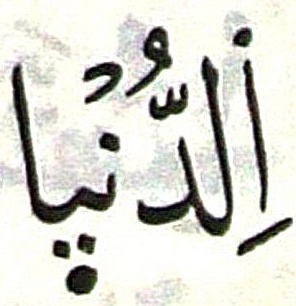 اِلدُّنْيا